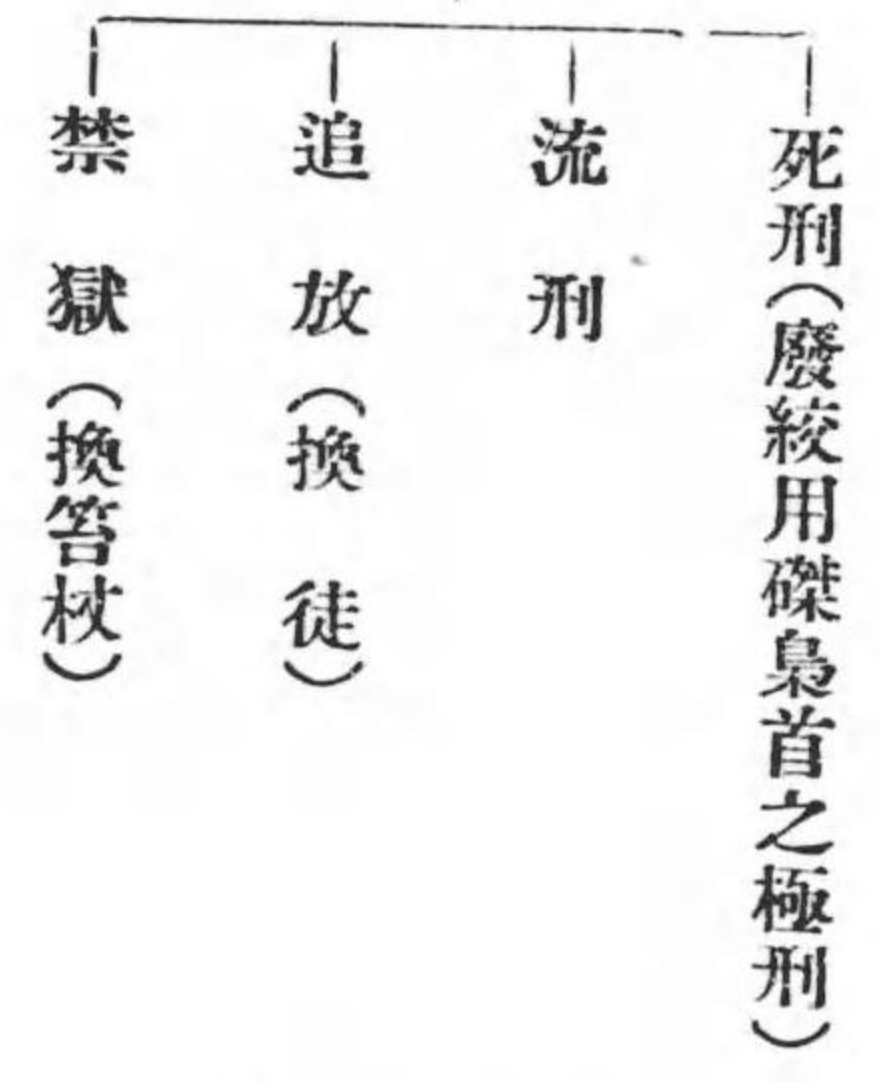 死刑(廢絞用磔梟首之極刑)
流刑
追放(換徒)
禁獄(換笞杖)